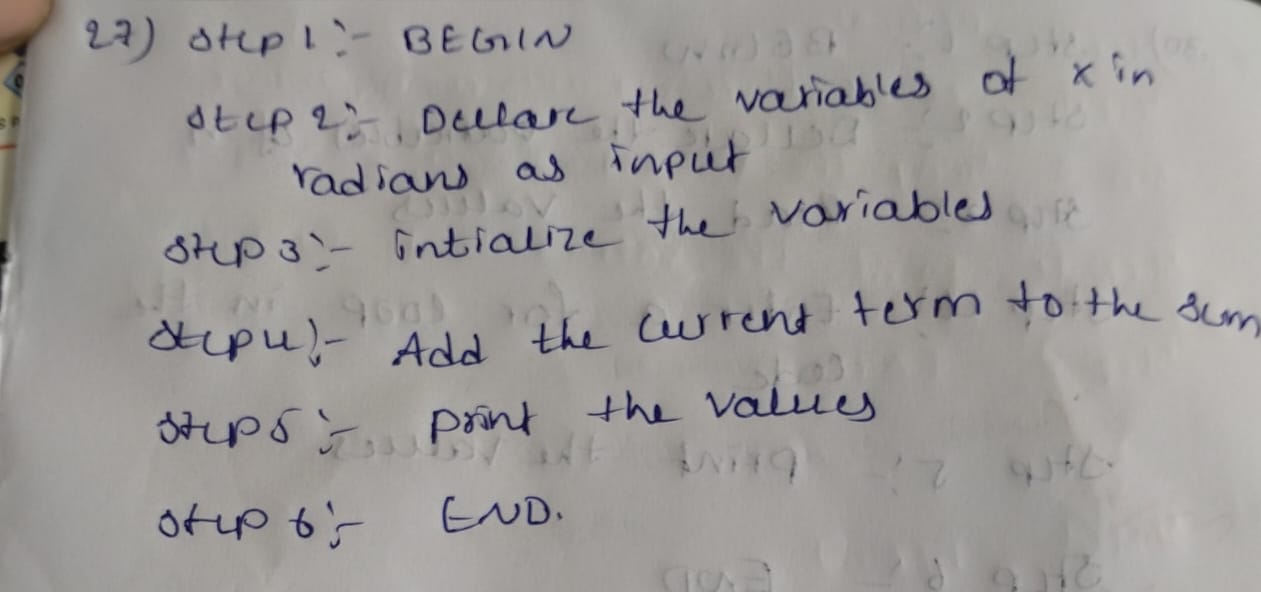 27) Step 1:- BEGIN
Step 2:- Declare the variables of x in
radians as input
Step 3:- intialize the variables
Step 4:- Add the current term to the sum
Step 5:- print the values
Step 6:- END.